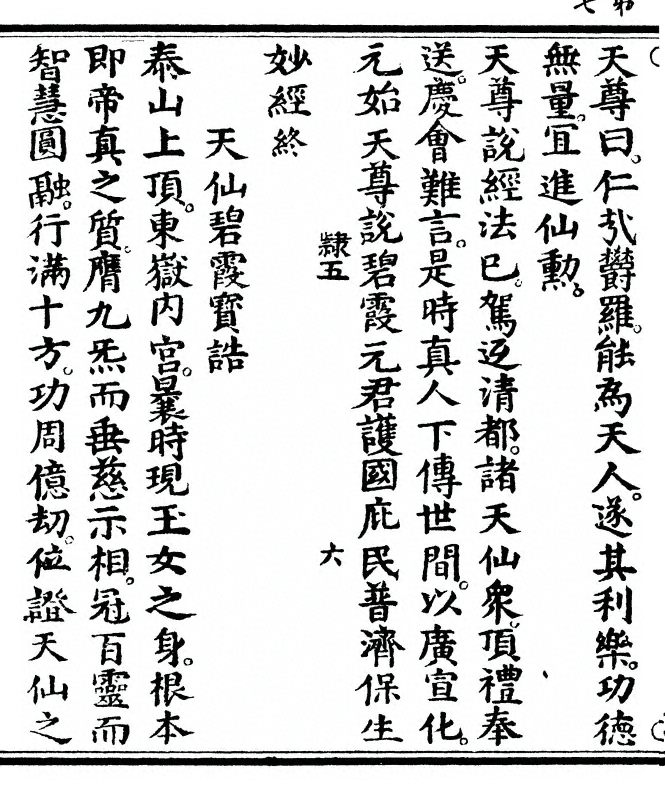 天尊曰。仁哉欝羅。能為天人。遂其利樂。功德
無量。宜進仙勲。
天尊說經法已。駕返清都。諸天仙衆。頂禮奉
送。慶會難言。是時真人下傳世間。以廣宣化。
元始天尊說碧霞元君護國庇民普濟保生
隸五 六
妙經終
天仙碧霞寶誥
泰山上頂。東嶽內宮。曩時現玉女之身。根本
即帝真之質。膺九炁而垂慈示相。冠百靈而
智慧圓融。行滿十方。功周億劫。位證天仙之